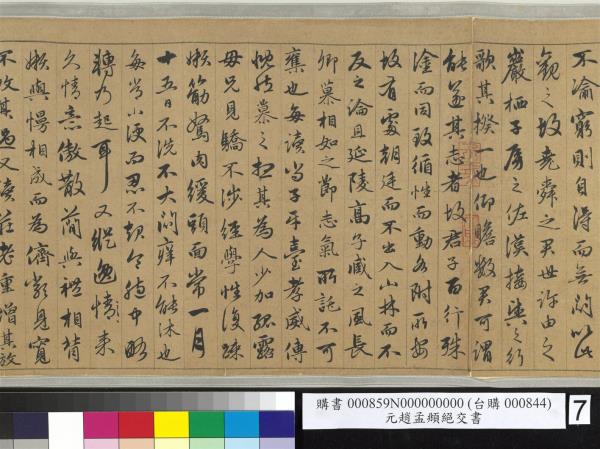 不渝窮則自得而無悶以此
觀之故堯舜之君世許由之
巖栖子房之佐漢接輿之行
歌其揆一也仰瞻數君可謂
能遂其志者故君子百行殊
塗而同致循性而動各附所安
故有處朝廷而不出入山林而不
反之論且延陵高子臧之風長
卿慕相如之節志氣所託不可
奪也每讀尚子平臺孝威傳
慨然慕之想其為人少加孤露
母兄見驕不涉經學性復疎
嬾筋駑肉緩頭面常一月
十五日不洗不大悶癢不能沐也
每常小便而忍不起令胞中略
轉乃起耳又縱逸情來
久情意傲散簡與禮相背
嬾與慢相成而為儕類見寬
不攻其過又讀莊老重增其放
購書 000859N000000000 (台購 000844)
元趙孟頫絕交書
7